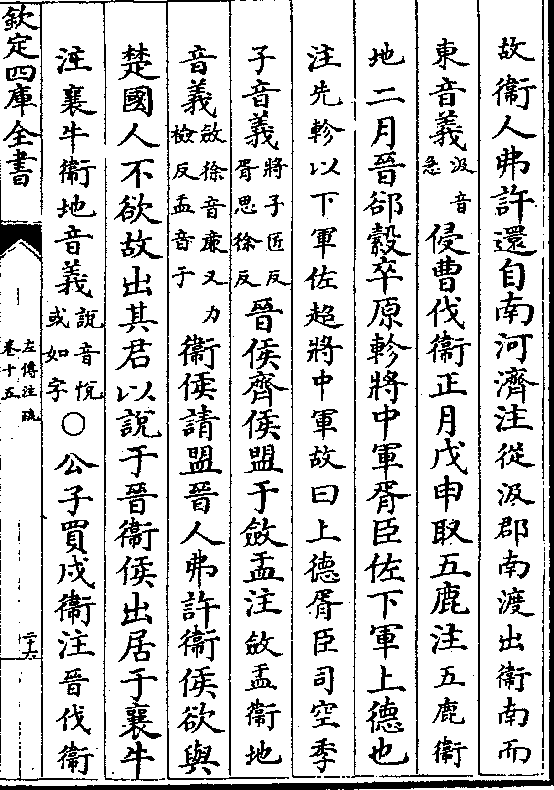 故衞人弗許還自南河濟注從汲郡南渡出衞南而
東音義汲音急侵曹伐衞正月戊申取五鹿注五鹿衞
地二月晉郤縠卒原軫將中軍胥臣佐下軍上德也
注先軫以下軍佐超將中軍故曰上德胥臣司空季
子音義將子匠反胥思徐反晉侯齊侯盟于斂盂注斂盂衞地
音義斂徐音廉又力檢反盂音于衞侯請盟晉人弗許衞侯欲與
楚國人不欲故出其君以說于晉衞侯出居于襄牛
注襄牛衞地音義說音悅或如字○公子買戍衞注晉伐衞
欽定四庫全書
左傳注疏
卷十五
二十六